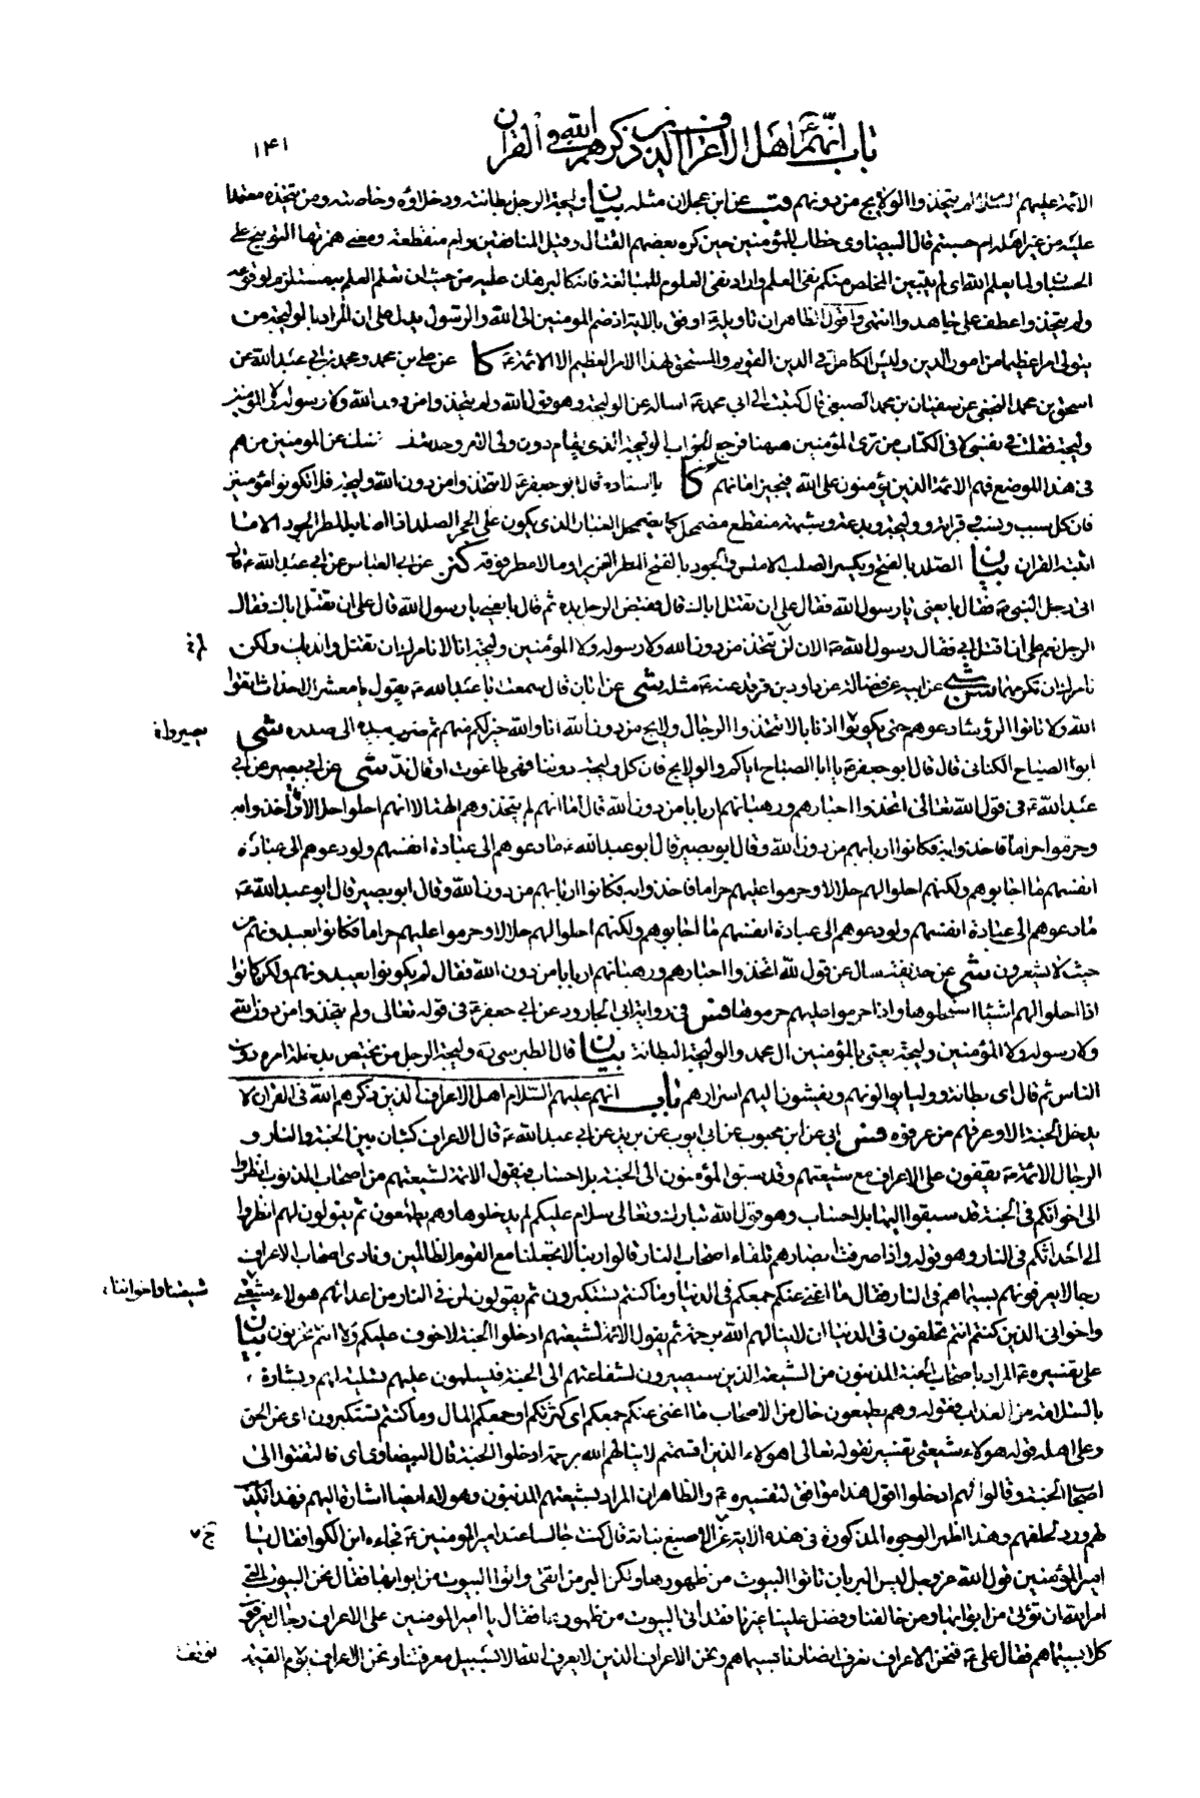 باب انهم اهل الاعراف الذين ذكرهم الله فى القران
١٤١
الائمة عليهم السلام لم يتخذوا الولايج من دونهم قب عن ابن عجلان مثله بيان وليجة الرجل بطانته ودخلاؤه وخاصته ومن يتخذه معتمدا
عليه من غير اهله ام حسبتم قال البيضاوى خطاب للمؤمنين حين كره بعضهم القتال وقيل المنافقين وام منقطعة ومعنى همزتها التوبيخ على
الحسبان ولما يعلم الله اى لم يتبين الخلص منكم نفى العلم واراد نفى المعلوم للمبالغة فانه كالبرهان عليه من حيث ان تعلق العلم به مستلزم لوقوعه
ولم يتخذوا عطف على جاهدوا انتهى واقول الظاهر ان تاويله اوفق بالاية اذ ضم المؤمنين الى الله والرسول يدل على ان المراد بالوليجة من
يتولى امرا عظيما من امور الدين وليس الكامل فى الدين القويم والمستحق لهذا الامر العظيم الا الائمة ع كا عن على بن محمد ومحمد بن ابى عبد الله عن
اسحق بن محمد النخعى عن سفيان بن محمد الصبعى قال كتبت الى ابى محمد ع اساله عن الوليجة وهو قول الله ولم يتخذوا من دون الله ولا رسوله ولا المؤمنين
وليجة فقلت فى نفسى لا فى الكتاب من ترى المؤمنين ههنا فرجع الجواب الوليجة الذى يقام دون ولى الامر وحدثتك نفسك عن المؤمنين من هم
فى هذا الموضع فهم الائمة الذين يؤمنون على الله فيجيز امانهم كا باسناده قال ابو جعفر ع لا تتخذوا من دون الله وليجة فلا تكونوا مؤمنين
فان كل سبب ونسب وقرابة ووليجة وبدعة وشبهة منقطع مضمحل كما يضمحل الغبار الذى يكون على الحجر الصلد اذا اصابه المطر الجود الا ما
اثبته القران بيان الصلد بالفتح ويكسر الصلب الاملس والجود بالفتح المطر الغزير او ما لا مطر فوقه كنز عن ابى العباس عن ابى عبد الله ع قال
اتى رجل النبى ص فقال بايعنى يا رسول الله فقال على ان تقتل اباك قال فقبض الرجل يده ثم قال بايعنى يا رسول الله قال على ان تقتل اباك فقال
الرجل نعم على ان اقتل ابى فقال رسول الله ص الان لن تتخذ من دون الله ولا رسوله ولا المؤمنين وليجة انا لا نامرك ان تقتل والديك ولكن
نامرك ان تكرمهما شى عن ابيه عن فضالة عن داود بن فرقد عنه ع مثله شى عن ابان قال سمعت ابا عبد الله ع يقول يا معشر الاحداث اتقوا
الله ولا تاتوا الرؤساء دعوهم حتى يكونوا اذنابا لا تتخذوا الرجال ولايج من دون الله انا والله خير لكم منهم ثم ضرب بيده الى صدره شى
يصيروا
ابو الصباح الكنانى قال قال ابو جعفر ع يا ابا الصباح اياكم والولايج فان كل وليجة دوننا فهى طاغوت او قال ند شى عن ابى بصير عن ابى
عبد الله ع فى قول الله تعالى اتخذوا احبارهم ورهبانهم اربابا من دون الله قال اما انهم لم يتخذوهم الهة الا انهم احلوا حلالا فاخذوا به
وحرموا حراما فاخذوا به فكانوا اربابهم من دون الله وقال ابو بصير قال ابو عبد الله ع ما دعوهم الى عبادة انفسهم ولو دعوهم الى عبادة
انفسهم ما اجابوهم ولكنهم احلوا لهم حلالا وحرموا عليهم حراما فاخذوا به فكانوا اربابهم من دون الله وقال ابو بصير قال ابو عبد الله ع
ما دعوهم الى عبادة انفسهم ولو دعوهم الى عبادة انفسهم ما اجابوهم ولكنهم احلوا لهم حلالا وحرموا عليهم حراما فكانوا يعبدونهم من
حيث لا يشعرون شى عن حذيفة سال عن قول الله اتخذوا احبارهم ورهبانهم اربابا من دون الله فقال لم يكونوا يعبدونهم ولكن كانوا
اذا احلوا لهم اشياء استحلوها واذا حرموا عليهم حرموها فس فى رواية ابى الجارود عن ابى جعفر ع فى قوله تعالى ولم يتخذوا من دون الله
ولا رسوله ولا المؤمنين وليجة يعنى بالمؤمنين ال محمد والوليجة البطانة بيان قال الطبرسى ره وليجة الرجل من يختص بدخلة امره دون
الناس ثم قال اى بطانة ووليا يوالونهم ويفشون اليهم اسرارهم باب انهم عليهم السلام اهل الاعراف الذين ذكرهم الله فى القران لا
يدخل الجنة الا من عرفهم وعرفوه فس ابى عن ابن محبوب عن ابى ايوب عن بريد عن ابى عبد الله ع قال الاعراف كثبان بين الجنة والنار و
الرجال الائمة ع يقفون على الاعراف مع شيعتهم وقد سبق المؤمنون الى الجنة بلا حساب فيقول الائمة لشيعتهم من اصحاب الذنوب انظروا
الى اخوانكم فى الجنة قد سبقوا اليها بلا حساب وهو قول الله تبارك وتعالى سلام عليكم لم يدخلوها وهم يطمعون ثم يقولون لهم انظروا
الى اعدائكم فى النار وهو قوله واذا صرفت ابصارهم تلقاء اصحاب النار قالوا ربنا لا تجعلنا مع القوم الظالمين ونادى اصحاب الاعراف
رجالا يعرفونهم بسيماهم فى النار فقال ما اغنى عنكم جمعكم فى الدنيا وما كنتم تستكبرون ثم يقولون لمن فى النار من اعدائهم هؤلاء شيعتى
شيعتنا واخواننا
واخوانى الذين كنتم انتم تحلفون فى الدنيا ان لا ينالهم الله برحمة ثم يقول الائمة لشيعتهم ادخلوا الجنة لا خوف عليكم ولا انتم تحزنون بيان
على تفسيره ع المراد باصحاب الجنة المذنبون من الشيعة الذين سيصيرون لشفاعتهم الى الجنة فيسلمون عليهم تسلية لهم وبشارة
بالسلامة من العذاب فقوله وهم يطمعون حال من الاصحاب ما اغنى عنكم جمعكم اى كثرتكم او جمعكم المال وما كنتم تستكبرون اى عن الحق
وعلى اهله قوله هؤلاء شيعتى تفسير لقوله تعالى اهؤلاء الذين اقسمتم لا ينالهم الله برحمة ادخلوا الجنة قال البيضاوى اى فالتفتوا الى
اصحاب الجنة وقالوا لهم ادخلوا اقول هذا موافق لتفسيره ع والظاهر ان المراد بشيعتهم المذنبون وهؤلاء ايضا اشارة اليهم فهذا تكذيب
لهم ورد لحلفهم وهذا اظهر الوجوه المذكورة فى هذه الاية ج عن الاصبغ بن نباتة قال كنت جالسا عند امير المؤمنين ع فجاءه ابن الكوا فقال يا
امير المؤمنين قول الله عز وجل ليس البر بان تاتوا البيوت من ظهورها ولكن البر من اتقى واتوا البيوت من ابوابها فقال نحن البيوت التى
امر الله ان تؤتى من ابوابها ومن خالفنا وفضل علينا غيرنا فقد اتى البيوت من ظهورها فقال يا امير المؤمنين وعلى الاعراف رجال يعرفون
كلا بسيماهم فقال على ع نحن الاعراف نعرف انصارنا بسيماهم ونحن الاعراف الذين لا يعرف الله الا بسبيل معرفتنا ونحن الاعراف يوم القيمة